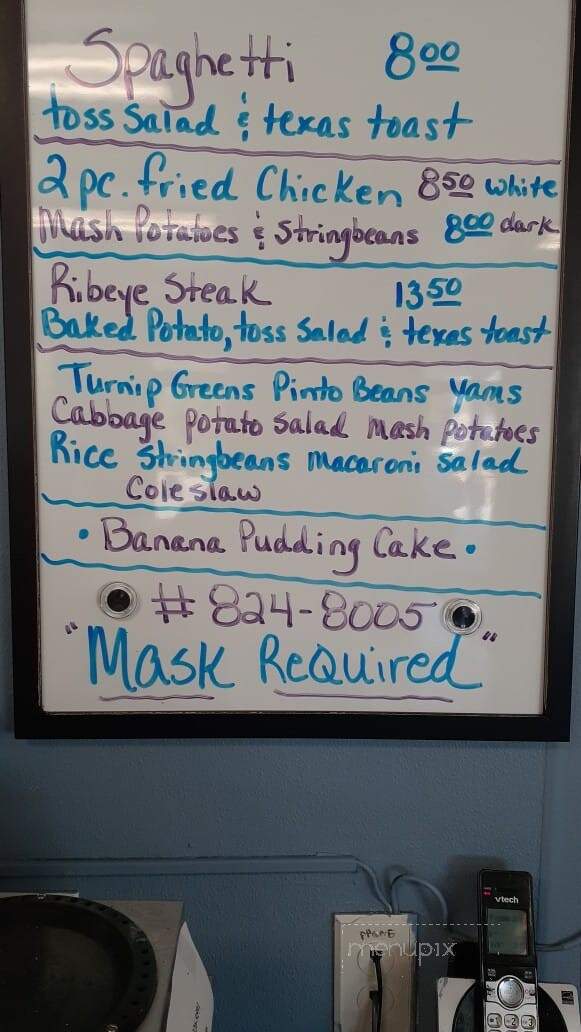 Spaghetti 8.00
toss Salad & texas toast
2 pc. fried Chicken 8.50 white
Mash Potatoes & Stringbeans 8.00 dark
Ribeye Steak 13.50
Baked Potato, toss Salad & texas toast
Turnip Greens Pinto Beans Yams
Cabbage potato Salad Mash potatoes
Rice Stringbeans Macaroni Salad
Coleslaw
• Banana Pudding Cake •
# 824-8005
"Mask Required"
vtech
PHONE
menupix
1 2 3